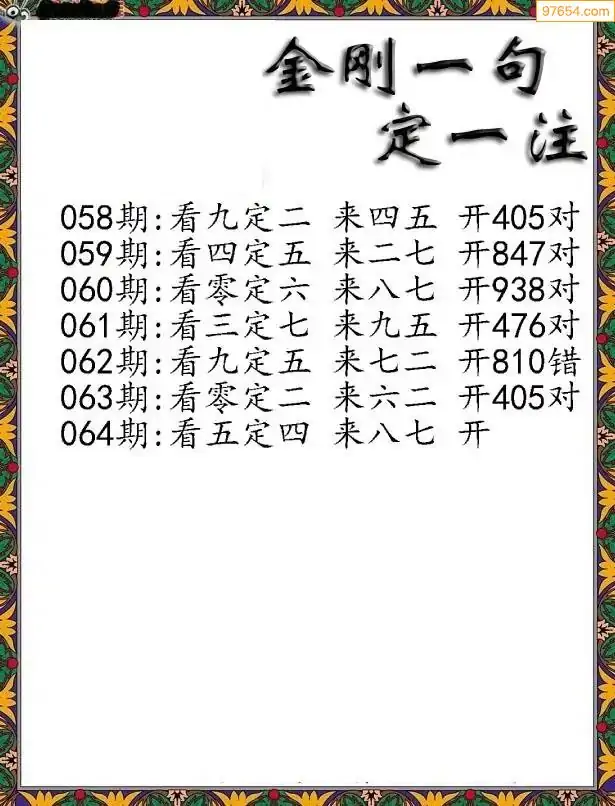 97654.com
金刚一句
定一注
058期:看九定二 来四五 开405对
059期:看四定五 来二七 开847对
060期:看零定六 来八七 开938对
061期:看三定七 来九五 开476对
062期:看九定五 来七二 开810错
063期:看零定二 来六二 开405对
064期:看五定四 来八七 开